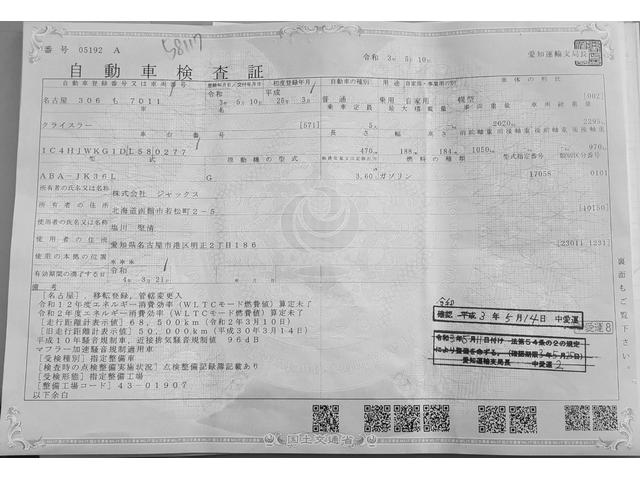 番号 05192 A
58117
令和 3年 5月 10日
愛知運輸支局長
自動車検査証
自動車登録番号又は車両番号 登録年月日/交付年月日 初度登録年月 自動車の種別 用途 自家用・事業用の別 車体の形状
名古屋 306 も 7011
令和 3年 5月 10日 平成 26年 3月 普通 乗用 自家用 幌型 [002]
車名 乗車定員 最大積載量 車両重量 車両総重量
クライスラー [571] 5人 2020kg 2295kg
車台番号 長さ 幅 高さ 前前軸重 前後軸重 後前軸重 後後軸重
1C4HJWKG1DL580277 470cm 188cm 184cm 1050kg 970kg
型式 原動機の型式 燃料の種類 型式指定番号 類別区分番号
ABA-JK36L G 3.60 ガソリン 17058 0101
所有者の氏名又は名称 株式会社 ジャックス
所有者の住所 北海道函館市若松町2-5 [10150]
使用者の氏名又は名称 塩川 堅清
使用者の住所 愛知県名古屋市港区明正2丁目186 [23011 1231]
使用の本拠の位置 ***
有効期間の満了する日 令和 4年 3月 21日
備考
[名古屋] 移転登録,管轄変更入
令和12年度エネルギー消費効率(WLTCモード燃費値)算定未了
令和2年度エネルギー消費効率(WLTCモード燃費値)算定未了
[走行距離計表示値]68,500km(令和2年3月10日)
[旧走行距離計表示値]50,000km(平成30年3月14日)
平成10年騒音規制車,近接排気騒音規制値 96dB
マフラー加速騒音規制適用車
[受検種別]指定整備車
[検査時の点検整備実施状況]点検整備記録簿記載あり
[受検形態]指定整備工場
[整備工場コード]43-01907
以下余白
令和
確認 平成 3年 5月 14日 中愛運
令和3年5月11日付け 法第54条の2の規定
により整備を命ずる。(確認期限3年5月25日)
愛知運輸支局長 中愛運 2
愛運8
裏面もご覧下さい
国土交通省